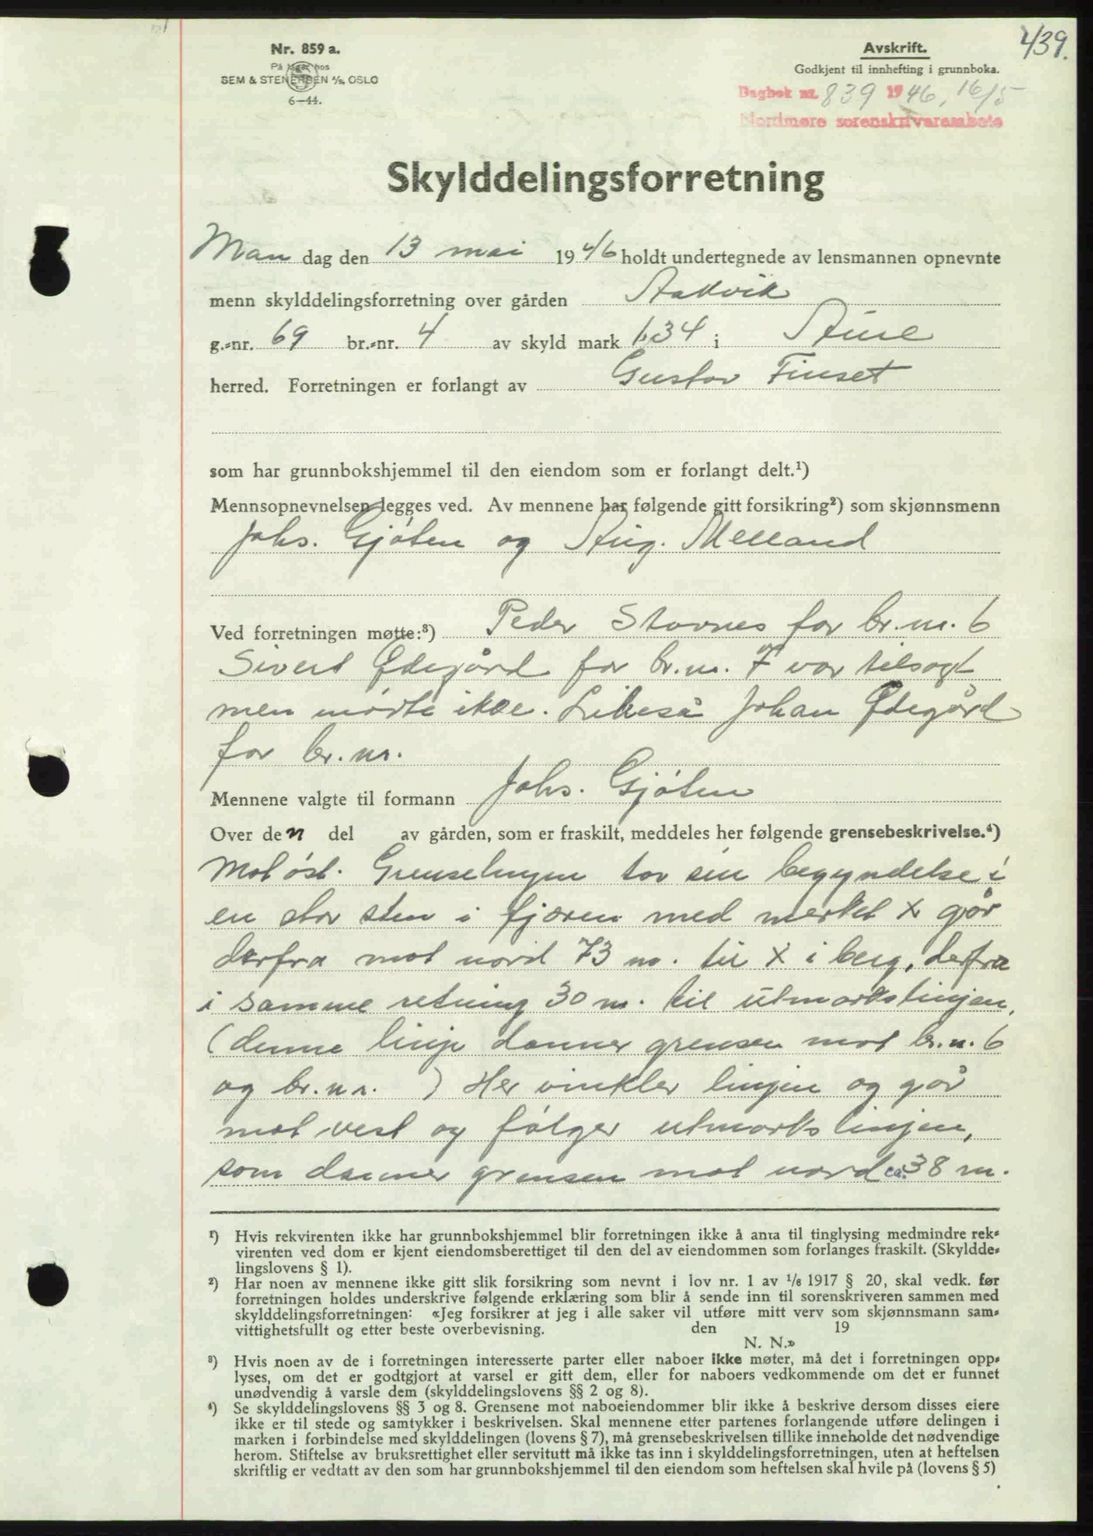 439.
Nr. 859 a.
På lager hos
SEM & STENERSEN A/S, OSLO
6-44.
Avskrift.
Godkjent til innhefting i grunnboka.
Dagbok nr. 839 1946, 16/5
Nordmøre sorenskrivarembete
Skylddelingsforretning
Man dag den 13 mai 1946 holdt undertegnede av lensmannen opnevnte
menn skylddelingsforretning over gården Aakvik
g.-nr. 69 br.-nr. 4 av skyld mark 1.34 i Aure
herred. Forretningen er forlangt av Gustav Finset
som har grunnbokshjemmel til den eiendom som er forlangt delt.¹)
Mennsopnevnelsen legges ved. Av mennene har følgende gitt forsikring²) som skjønnsmenn
Johs. Gjøten og Aug. Melland
Ved forretningen møtte:³) Peder Stavnes for br.nr. 6
Sivert Ødegård for br.nr. 7 var tilsagt
men møtte ikke. Likeså Johan Ødegård
for br.nr.
Mennene valgte til formann Johs. Gjøten
Over den del av gården, som er fraskilt, meddeles her følgende grensebeskrivelse.⁴)
Mot øst. Grenselinjen tar sin begyndelse i
en stor sten i fjæren med merket X går
derfra mot nord 73 m. til X i berg, derfra
i samme retning 30 m. til utmarkslinjen,
(denne linje danner grensen mot br.nr. 6
og br.nr. ) Her vinkler linjen og går
mot vest og følger utmarkslinjen,
som danner grensen mot nord ca. 38 m.
¹) Hvis rekvirenten ikke har grunnbokshjemmel blir forretningen ikke å anta til tinglysing medmindre rek-
virenten ved dom er kjent eiendomsberettiget til den del av eiendommen som forlanges fraskilt. (Skyldde-
lingslovens § 1).
²) Har noen av mennene ikke gitt slik forsikring som nevnt i lov nr. 1 av 1/6 1917 § 20, skal vedk. før
forretningen holdes underskrive følgende erklæring som blir å sende inn til sorenskriveren sammen med
skylddelingsforretningen: «Jeg forsikrer at jeg i alle saker vil utføre mitt verv som skjønnsmann sam-
vittighetsfullt og etter beste overbevisning. den 19
N. N.»
³) Hvis noen av de i forretningen interesserte parter eller naboer ikke møter, må det i forretningen opp-
lyses, om det er godtgjort at varsel er gitt dem, eller for naboers vedkommende om det er funnet
unødvendig å varsle dem (skylddelingslovens §§ 2 og 8).
⁴) Se skylddelingslovens §§ 3 og 8. Grensene mot naboeiendommer blir ikke å beskrive dersom disses eiere
ikke er til stede og samtykker i beskrivelsen. Skal mennene etter partenes forlangende utføre delingen i
marken i forbindelse med skylddelingen (lovens § 7), må grensebeskrivelsen tillike inneholde det nødvendige
herom. Stiftelse av bruksrettighet eller servitutt må ikke tas inn i skylddelingsforretningen, uten at heftelsen
skriftlig er vedtatt av den som har grunnbokshjemmel til den eiendom som heftelsen skal hvile på (lovens § 5)